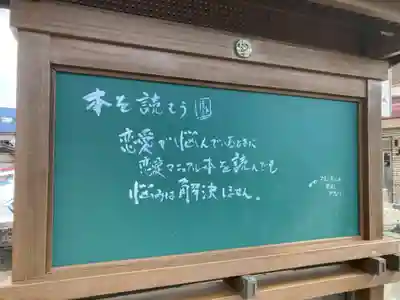 本を読もう
恋愛が悩んでいるときに
恋愛マニュアル本を読んでも
悩みは解決しません。